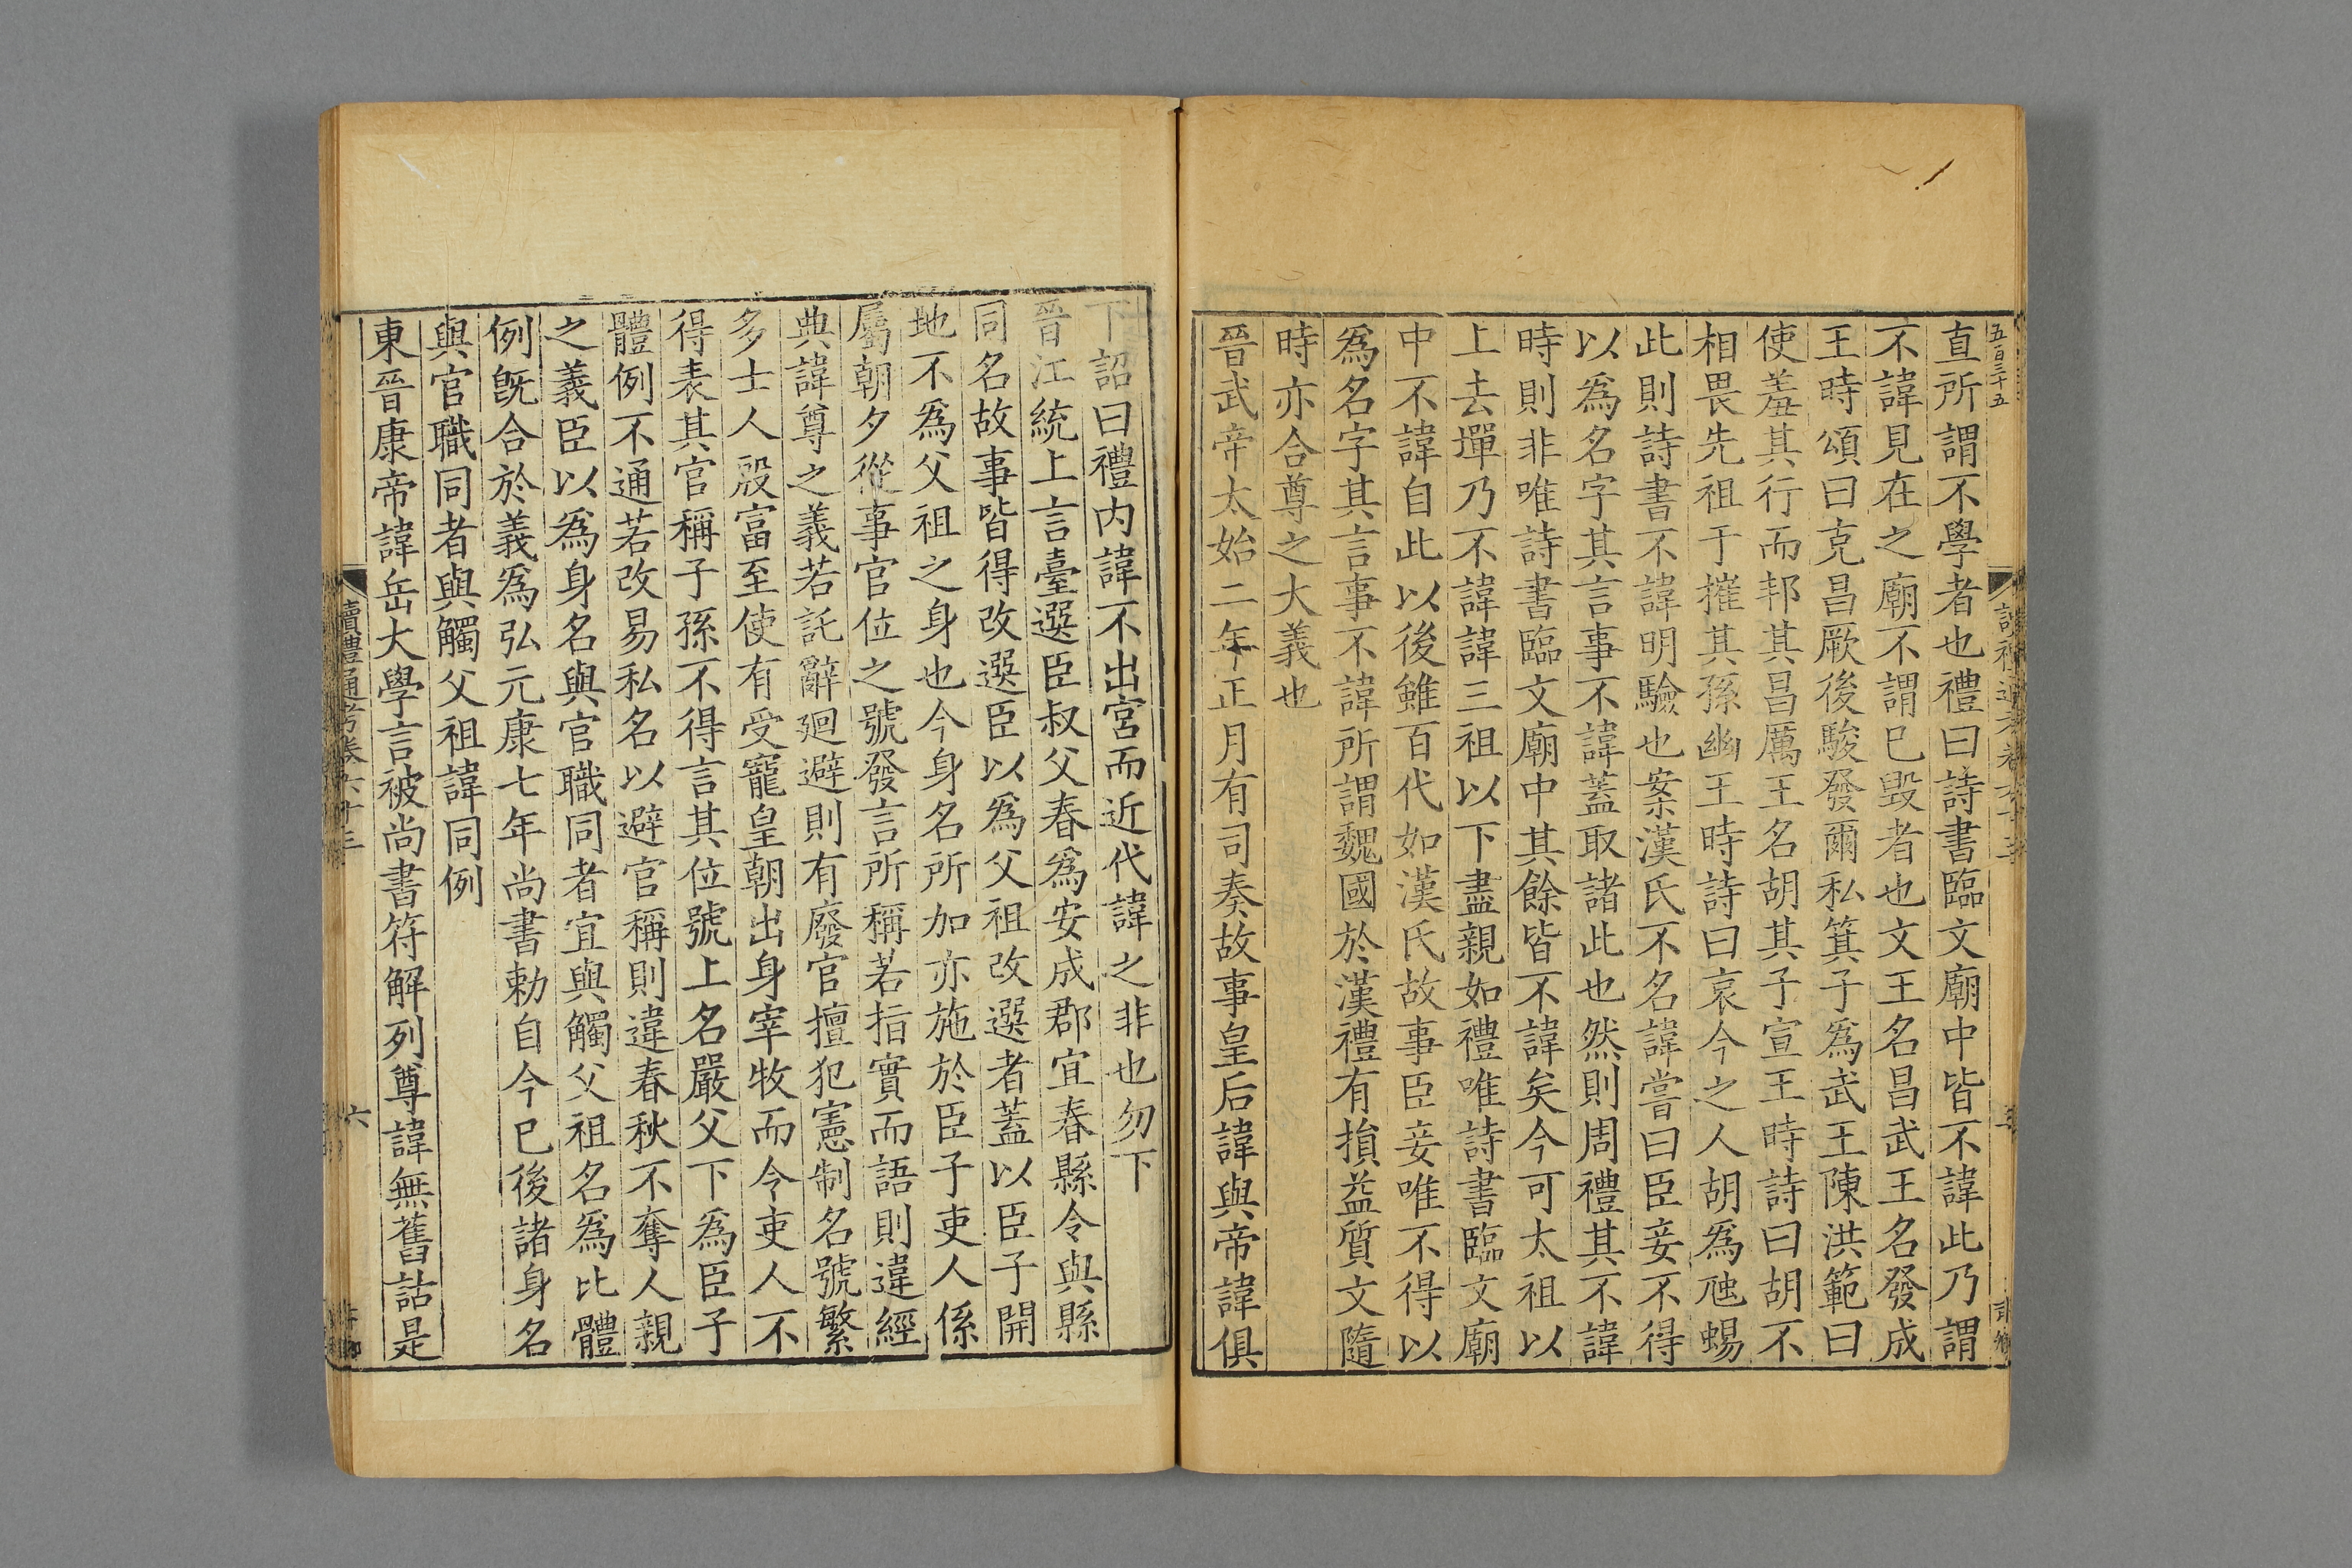 五百三十五
直所謂不學者也禮曰詩書臨文廟中皆不諱此乃謂
不諱見在之廟不謂巳毀者也文王名昌武王名發成
王時頌曰克昌厥後駿發爾私箕子爲武王陳洪範曰
使羞其行而邦其昌厲王名胡其子宣王時詩曰胡不
相畏先祖于摧其孫幽王時詩曰哀今之人胡爲虺蜴
此則詩書不諱明驗也案漢氏不名諱嘗曰臣妾不得
以爲名字其言事不諱蓋取諸此也然則周禮其不諱
時則非唯詩書臨文廟中其餘皆不諱矣今可太祖以
上去墠乃不諱諱三祖以下盡親如禮唯詩書臨文廟
中不諱自此以後雖百代如漢氏故事臣妾唯不得以
爲名字其言事不諱所謂魏國於漢禮有損益質文隨
時亦合尊之大義也
晉武帝太始二年正月有司奏故事皇后諱與帝諱俱
下詔曰禮内諱不出宮而近代諱之非也勿下
晉江統上言臺選臣叔父春爲安成郡宜春縣令與縣
同名故事皆得改選臣以爲父祖改選者蓋以臣子開
地不爲父祖之身也今身名所加亦施於臣子吏人係
屬朝夕從事官位之號發言所稱若指實而語則違經
典諱尊之義若託辭廻避則有廢官擅犯憲制名號繁
多士人殷富至使有受寵皇朝出身宰牧而令吏人不
得表其官稱子孫不得言其位號上名嚴父下爲臣子
體例不通若改易私名以避官稱則違春秋不奪人親
之義臣以爲身名與官職同者宜與觸父祖名爲比體
例旣合於義爲弘元康七年尚書勅自今巳後諸身名
與官職同者與觸父祖諱同例
東晉康帝諱岳大學言被尚書符解列尊諱無舊詁是
讀禮通考卷六十三
六